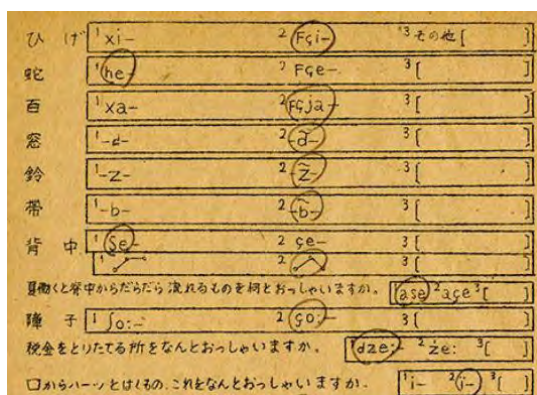 ひげ 1 xi- 2 Fçi- 3 その他 [ ]
蛇 1 he- 2 Fçe- 3 [ ]
百 1 xa- 2 Fçja- 3 [ ]
窓 1 -d- 2 -d̃- 3 [ ]
鈴 1 -z- 2 -z̃- 3 [ ]
帯 1 -b- 2 -b̃- 3 [ ]
背中 1 se- 2 çe- 3 [ ]
1 2 3 [ ]
夏働くと背中からだらだら流れるものを何とおっしゃいますか。 1 ase 2 açe 3 [ ]
障子 1 ʃo:- 2 ço:- 3 [ ]
税金をとりたてる所をなんとおっしゃいますか。 1 dze:- 2 ze: 3 [ ]
口からハーッとはくもの、これをなんとおっしゃいますか. 1 i- 2 i- 3 [ ]